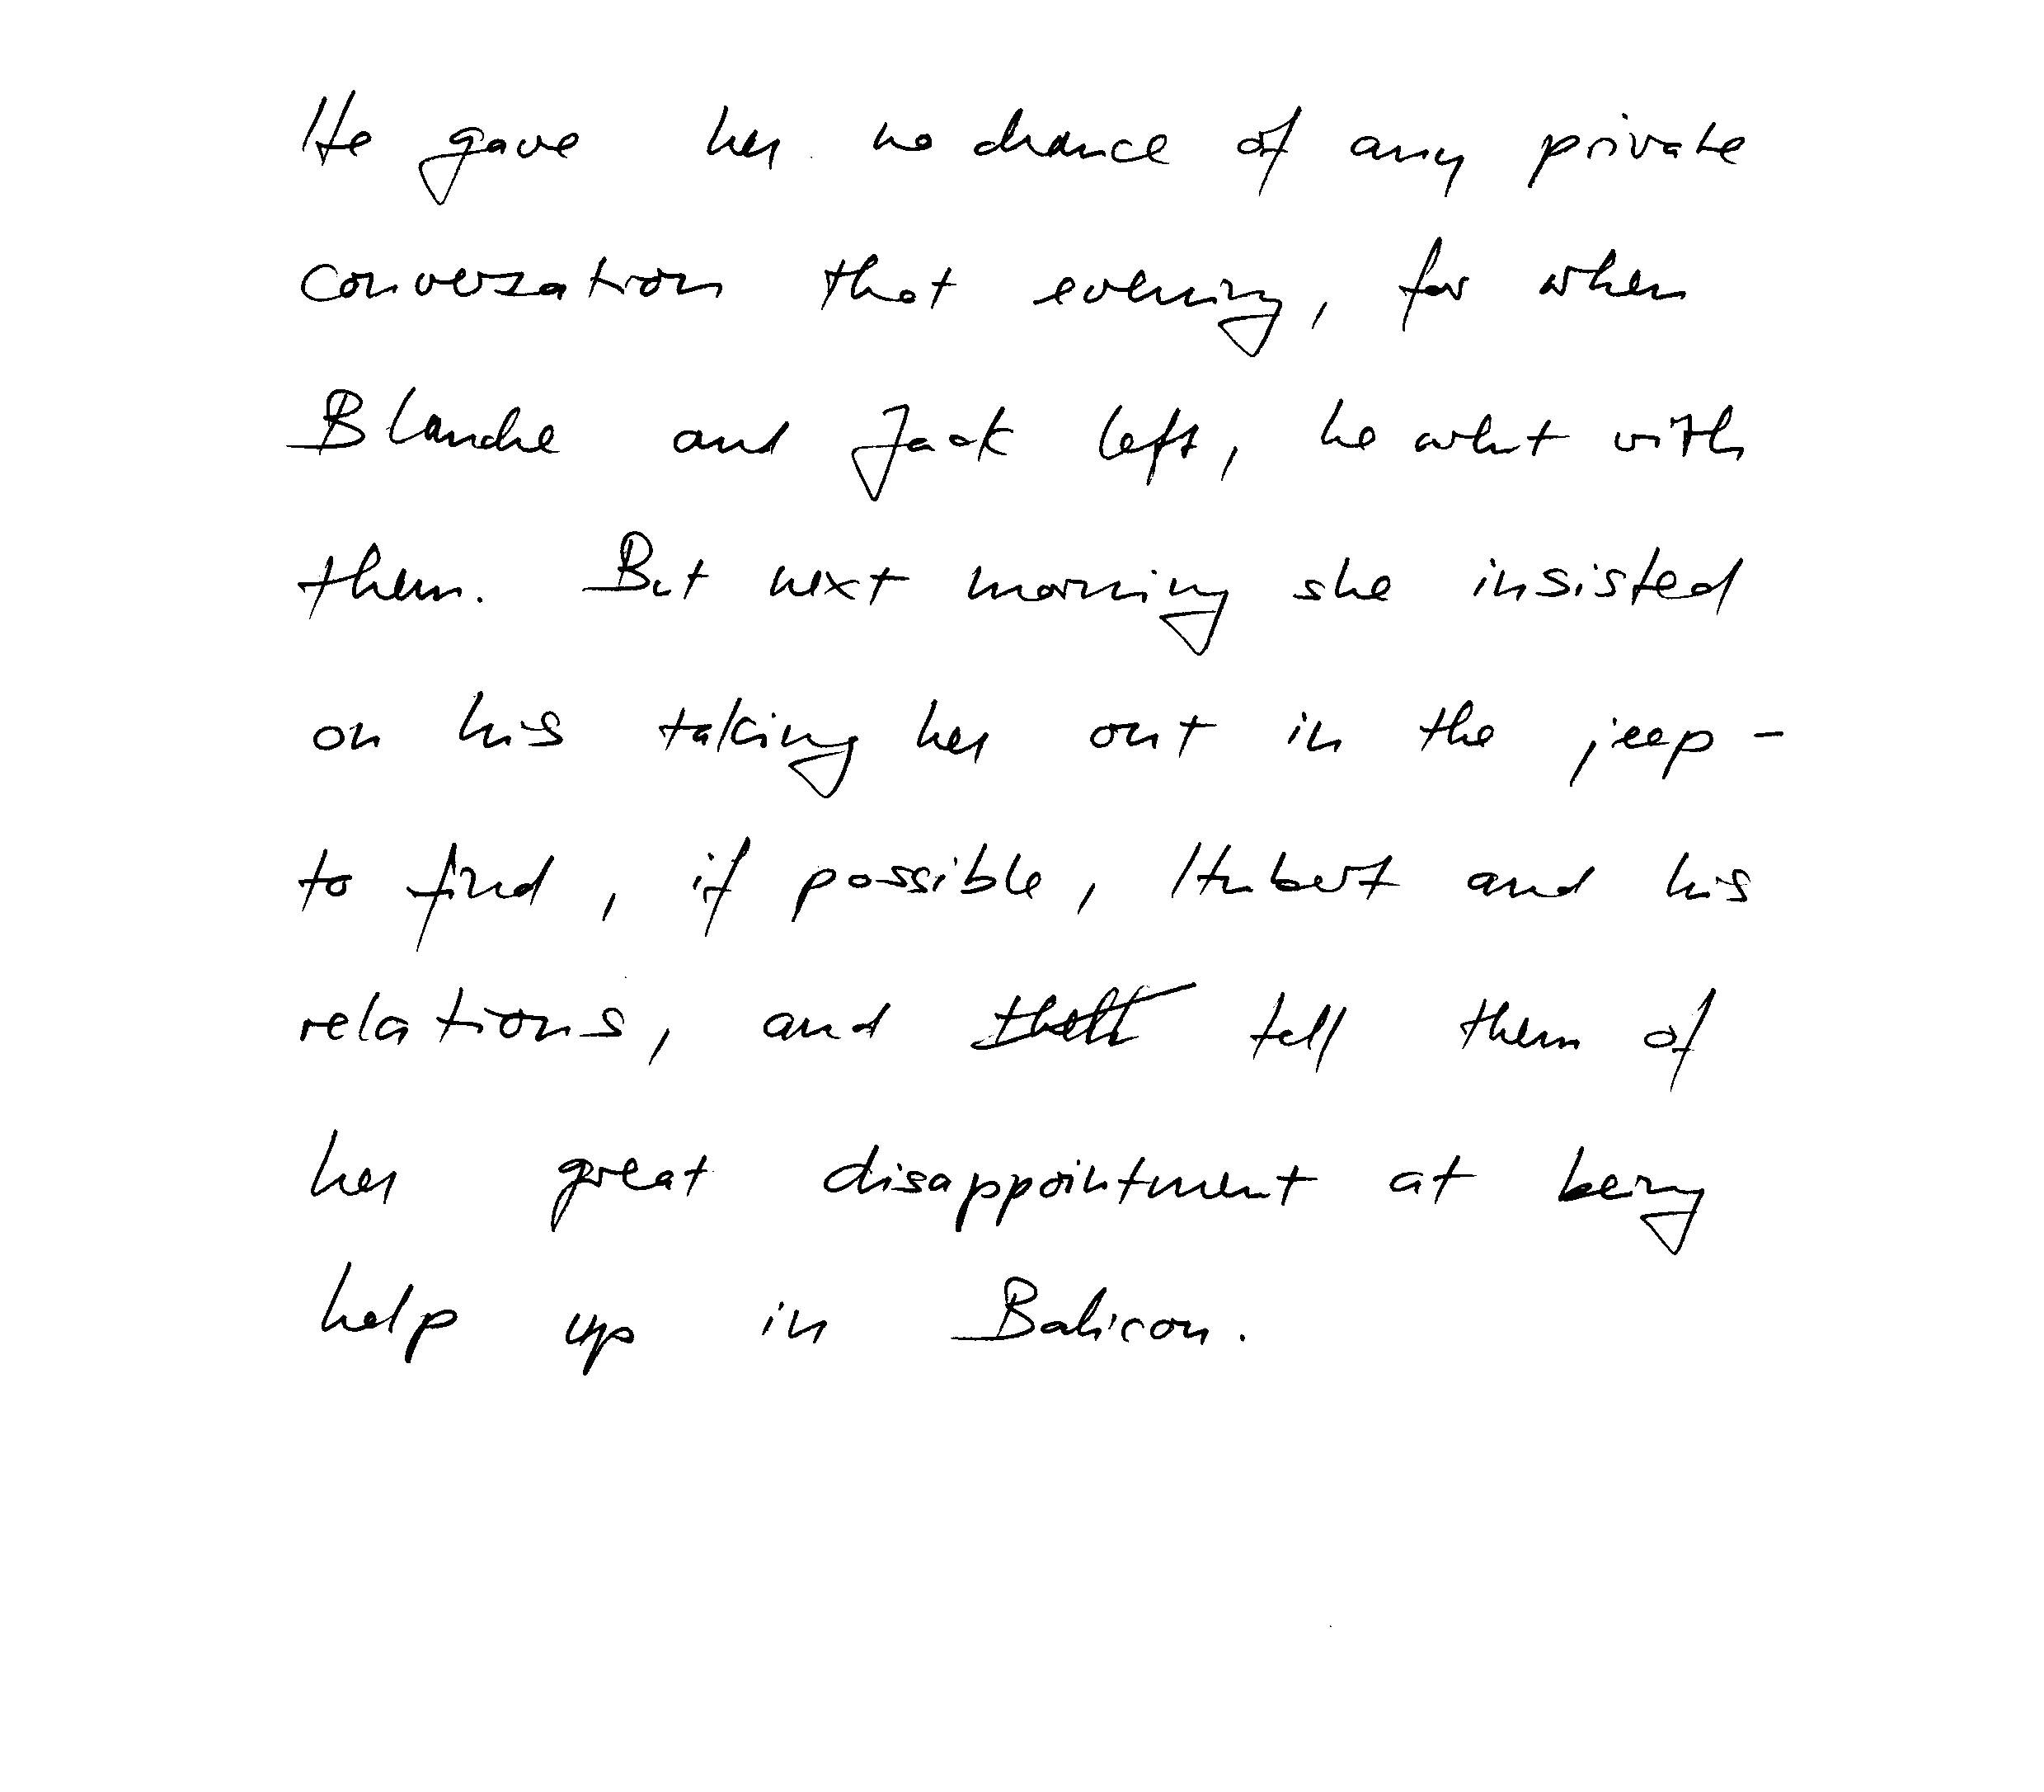 He gave her no chance of any private
conversation that evening, for when
Blanche and Jack left, he went with
them. But next morning she insisted
on his taking her out in the jeep -
to find, if possible, Hubert and his
relations, and tell them of
her great disappointment at being
help up in Balicon.